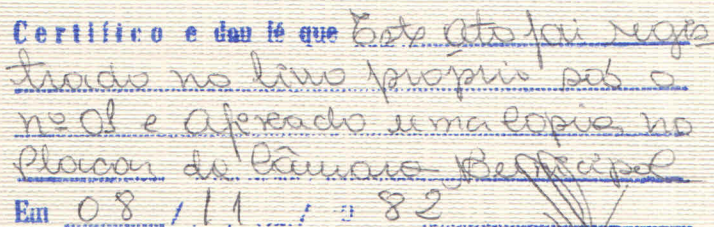 Certifico e dou fé que Este Ato foi regis
trado no livro proprio sob o
nº 01 e afixado uma copia no
Placar da Câmara Municipal
Em 08 / 11 / 1982